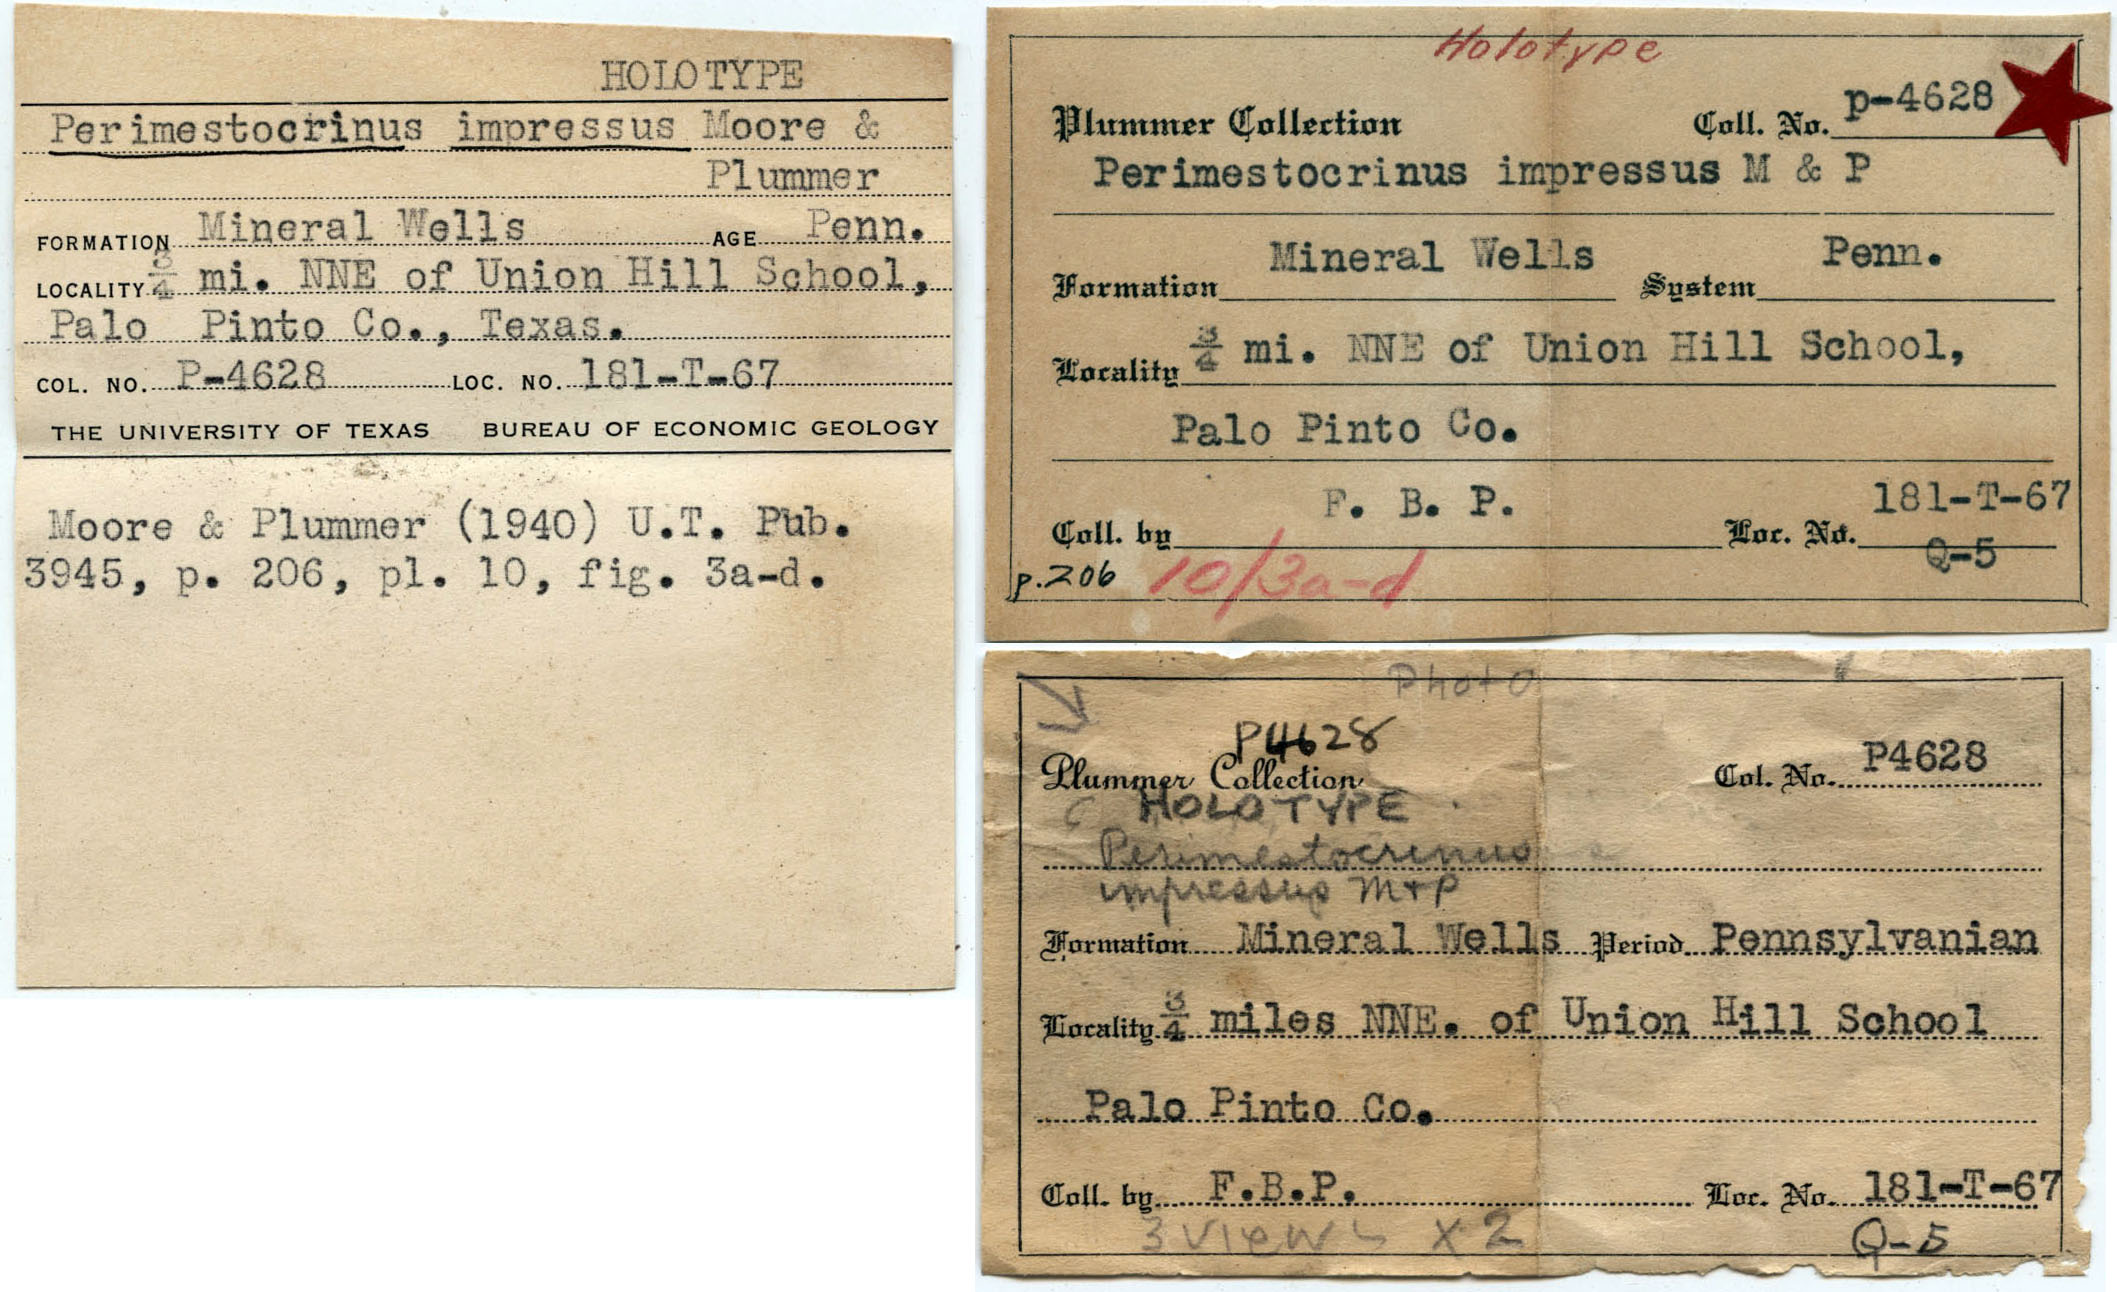 HOLOTYPE
Perimestocrinus impressus Moore &
Plummer
FORMATION Mineral Wells AGE Penn.
LOCALITY 3/4 mi. NNE of Union Hill School,
Palo Pinto Co., Texas.
COL. NO. P-4628 LOC. NO. 181-T-67
THE UNIVERSITY OF TEXAS BUREAU OF ECONOMIC GEOLOGY
Moore & Plummer (1940) U.T. Pub.
3945, p. 206, pl. 10, fig. 3a-d.
Holotype
Plummer Collection Coll. No. p-4628
Perimestocrinus impressus M & P
Formation Mineral Wells System Penn.
Locality 3/4 mi. NNE of Union Hill School,
Palo Pinto Co.
Coll. by F. B. P. Loc. No. 181-T-67
Q-5
p.206 10/3a-d
Photo
P4628
Plummer Collection Col. No. P4628
HOLOTYPE
Perimestocrinus
impressus M+P
Formation Mineral Wells Period Pennsylvanian
Locality 3/4 miles NNE. of Union Hill School
Palo Pinto Co.
Coll. by F.B.P. Loc. No. 181-T-67
3 views x 2
Q-5